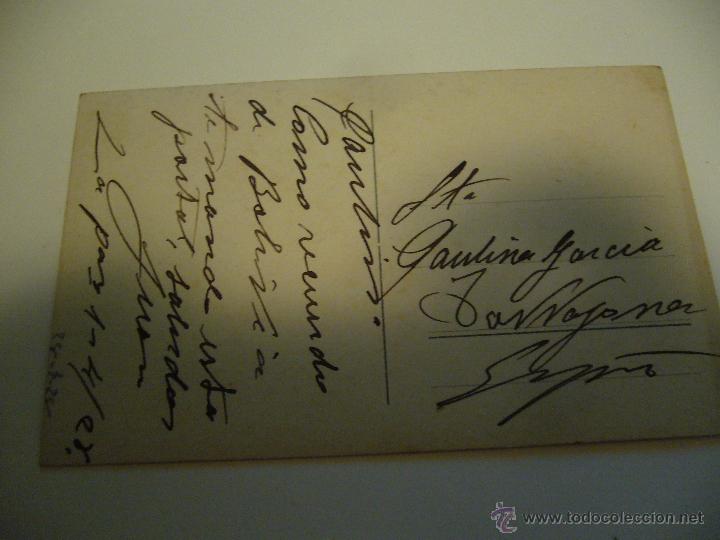 Paulina
Como recuerdo
de Bolivia
te mando esta
postal, saludos
Juan
La paz 1-4/28.
Sta.
Paulina Garcia
Tarragona
España
www.todocoleccion.net